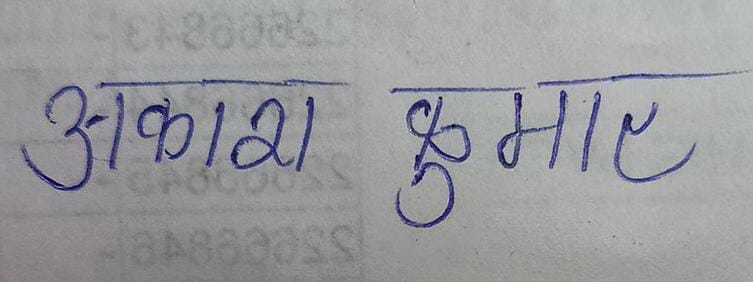 अकाश कुमार